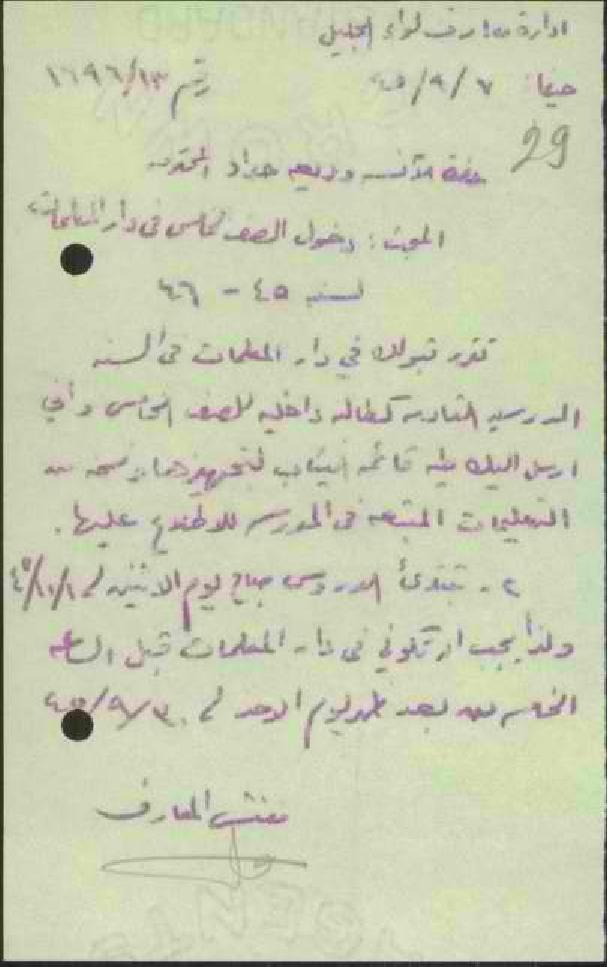 ادارة معارف لواء الجليل
حيفا: ٧/٩/٤٥ رقم ١٣/١٦٩٦
29
حضرة الآنسه وديعه حداد المحترمه
المبحث: دخول الصف الخامس في دار المعلمات
لسنه ٤٥ - ٤٦
تقرر قبولك في دار المعلمات في السنه
المدرسيه القادمه كطالبه داخليه للصف الخامس واني
ارسل اليك طيه قائمه الثياب لتجهيزها ونسخه من
التعليمات المتبعه في المدرسه للاطلاع عليها.
٢- تبتدئ الدروس صباح يوم الاثنين في ١/١٠/٤٥
ولذا يجب ان تكوني في دار المعلمات قبل الساعه
الخامسه من بعد ظهر يوم الاحد في ٣٠/٩/٤٥
مفتش المعارف